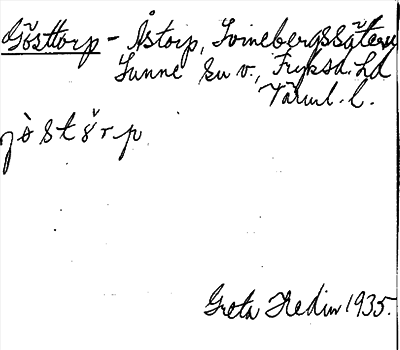 Gösttorp - Åstorp, Svinebergssätern
Sunne sn v., Fryksd. hd
Värml. l.
jòstǒrp
Greta Hedin 1935.